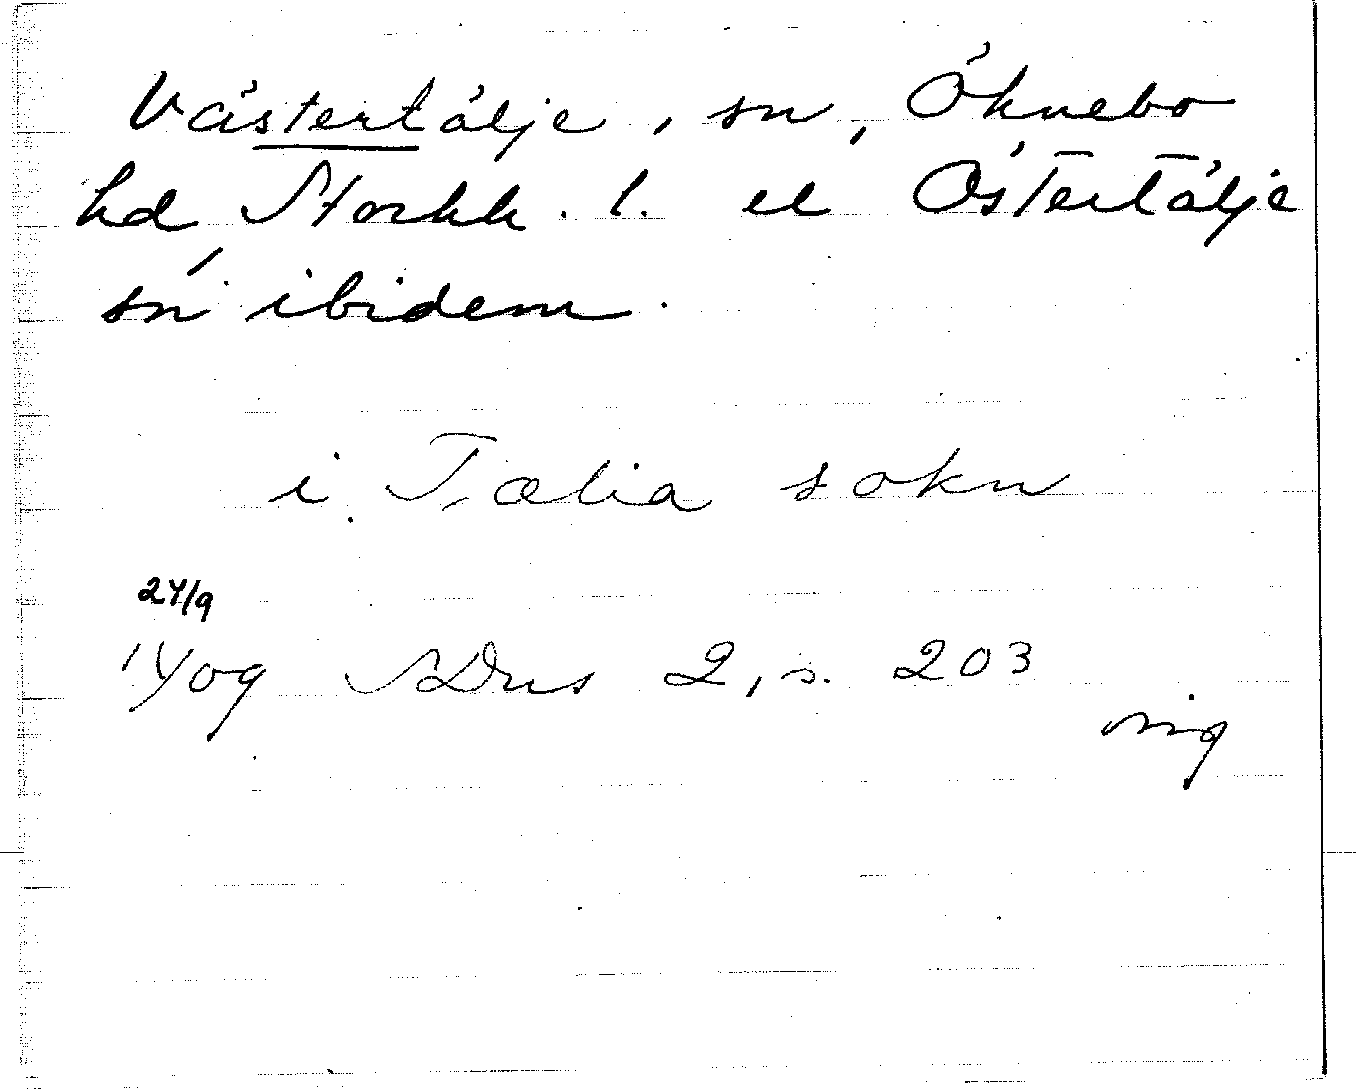 Västertälje, sn, Öknebo
hd, Stockh. l. el Östertälje
sn ibidem.
i Tælia sokn
24/9
1409 SDns 2, s. 203